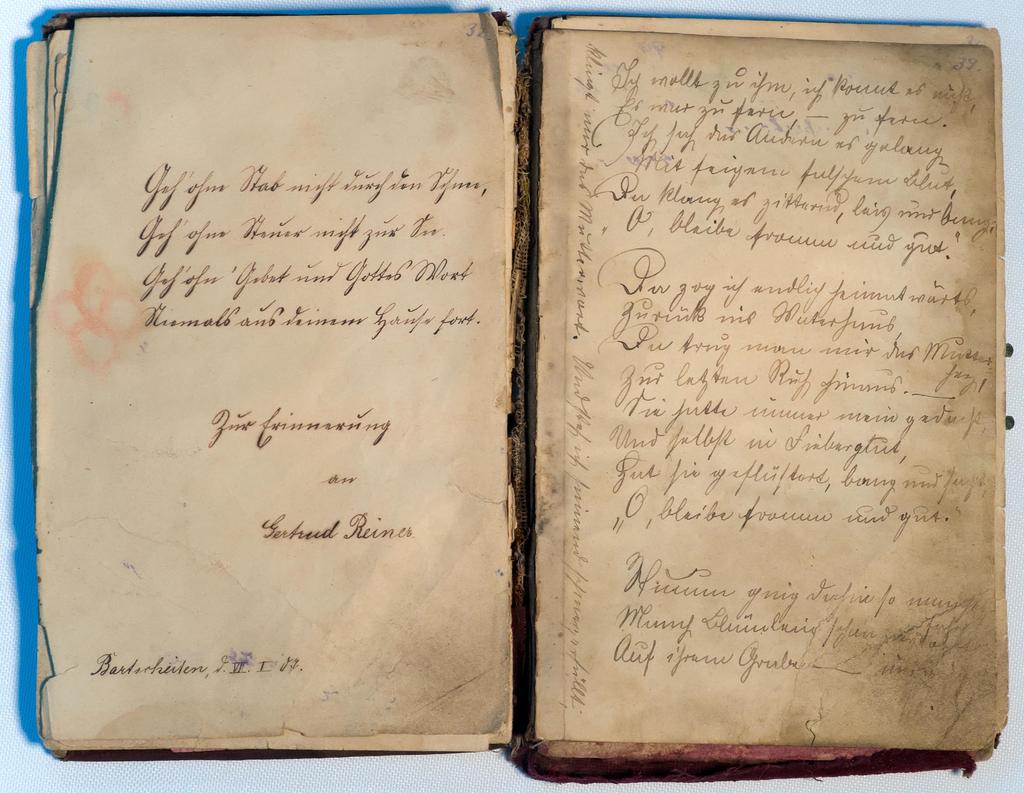 32
Geh' ohne Stab nicht durch den Schnee,
Geh' ohne Steuer nicht zur See.
Geh' ohn' Gebet und Gottes Wort
Niemals aus deinem Hause fort.
Zur Erinnerung
an
Gertrud Reiner
Bartscheiten, d. VII. I
33.
Ich wollt zu ihm, ich konnt es nicht,
Es war zu fern, – zu fern.
Ich sah das Andern es gelang
Mit feigem falschem Blut,
Da klang es zitternd, leis und bang,
"O, bleibe fromm und gut."
Da zog ich endlich heimatwärts,
Zurück ins Vaterhaus,
Da trug man mir das Mutter-
herz,
Zur letzten Ruh hinaus. —
Sie hatte immer mein gedacht,
Und selbst in Fieberglut,
Hat sie geflüstert, bang und sacht,
"O, bleibe fromm und gut."
Nun ging dahin so manches
Jahr
Manch Blümlein schon
Auf ihrem Grabe
Klingt mir das Mutterwort. Und steh ich sinnend